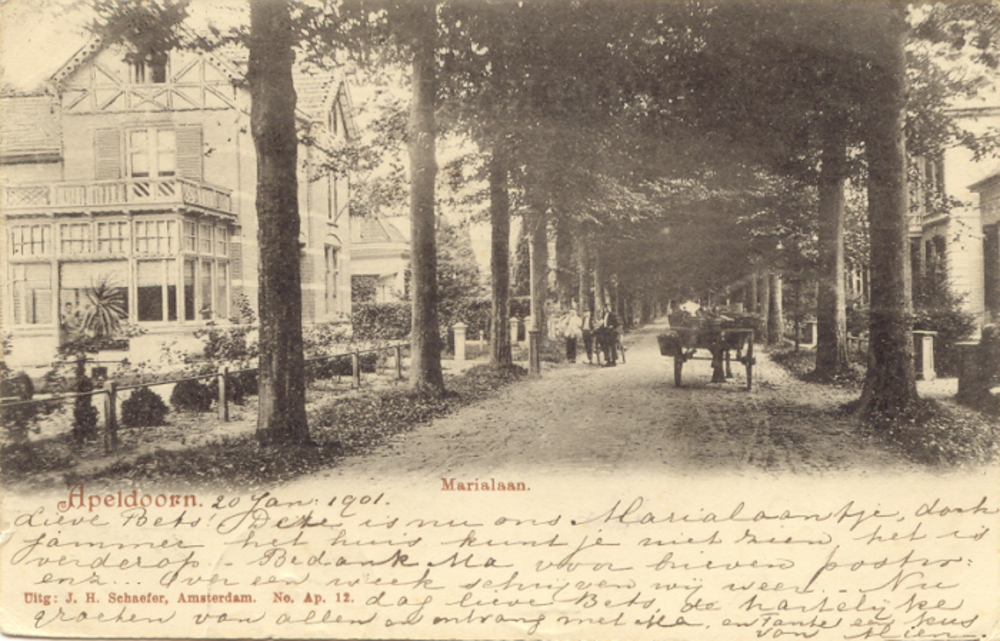 Marialaan.
Apeldoorn. 20 Jan. 1901.
Lieve Bets! Deze is nu ons Marialaantje, doch
jammer het huis kunt je niet zien, het is
verderop. - Bedank Ma voor brieven postw:
enz... Over een week schrijven wij weer. - Nu
Uitg: J. H. Schaefer, Amsterdam. No. Ap. 12.
dag lieve Bets, de hartelijke
groeten van allen en ontvang met Ma, en Tante een kus
van